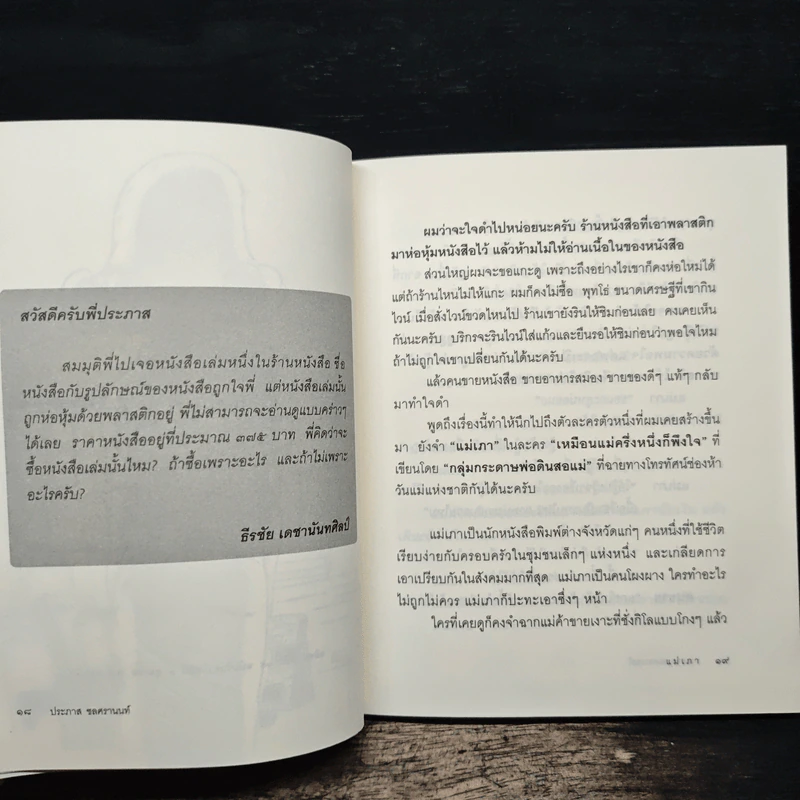 สวัสดีครับพี่ประภาส
สมมุติพี่ไปเจอหนังสือเล่มหนึ่งในร้านหนังสือ ชื่อ
หนังสือกับรูปลักษณ์ของหนังสือถูกใจพี่ แต่หนังสือเล่มนั้น
ถูกห่อหุ้มด้วยพลาสติกอยู่ พี่ไม่สามารถจะอ่านดูแบบคร่าวๆ
ได้เลย ราคาหนังสืออยู่ที่ประมาณ ๓๗๕ บาท พี่คิดว่าจะ
ซื้อหนังสือเล่มนั้นไหม? ถ้าซื้อเพราะอะไร และถ้าไม่เพราะ
อะไรครับ?
ธีรชัย เดชานันทศิลป์
๑๘ ประภาส ชลศรานนท์
ผมว่าจะใจดำไปหน่อยนะครับ ร้านหนังสือที่เอาพลาสติก
มาห่อหุ้มหนังสือไว้ แล้วห้ามไม่ให้อ่านเนื้อในของหนังสือ
ส่วนใหญ่ผมจะขอแกะดู เพราะถึงอย่างไรเขาก็คงห่อใหม่ได้
แต่ถ้าร้านไหนไม่ให้แกะ ผมก็คงไม่ซื้อ พุทโธ่ ขนาดเศรษฐีที่เขากิน
ไวน์ เมื่อสั่งไวน์ขวดไหนไป ร้านเขายังรินให้ชิมก่อนเลย คงเคยเห็น
กันนะครับ บริกรจะรินไวน์ใส่แก้วและยืนรอให้ชิมก่อนว่าพอใจไหม
ถ้าไม่ถูกใจเขาเปลี่ยนกันได้นะครับ
แล้วคนขายหนังสือ ขายอาหารสมอง ขายของดีๆ แท้ๆ กลับ
มาทำใจดำ
พูดถึงเรื่องนี้ทำให้นึกไปถึงตัวละครตัวหนึ่งที่ผมเคยสร้างขึ้น
มา ยังจำ “แม่เภา” ในละคร “เหมือนแม่ครึ่งหนึ่งก็พึงใจ” ที่
เขียนโดย “กลุ่มกระดาษพ่อดินสอแม่” ที่ฉายทางโทรทัศน์ช่องห้า
วันแม่แห่งชาติกันได้นะครับ
แม่เภาเป็นนักหนังสือพิมพ์ต่างจังหวัดแก่ๆ คนหนึ่งที่ใช้ชีวิต
เรียบง่ายกับครอบครัวในชุมชนเล็กๆ แห่งหนึ่ง และเกลียดการ
เอาเปรียบกันในสังคมมากที่สุด แม่เภาเป็นคนโผงผาง ใครทำอะไร
ไม่ถูกไม่ควร แม่เภาก็ปะทะเอาซึ่งๆ หน้า
ใครที่เคยดูก็คงจำฉากแม่ค้าขายเงาะที่ชั่งกิโลแบบโกงๆ แล้ว
แม่เภา ๑๙